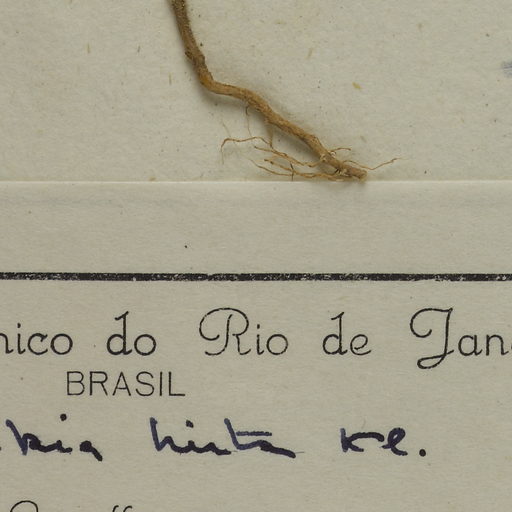 nico do Rio de Jan
BRASIL
kia hirta Kl.